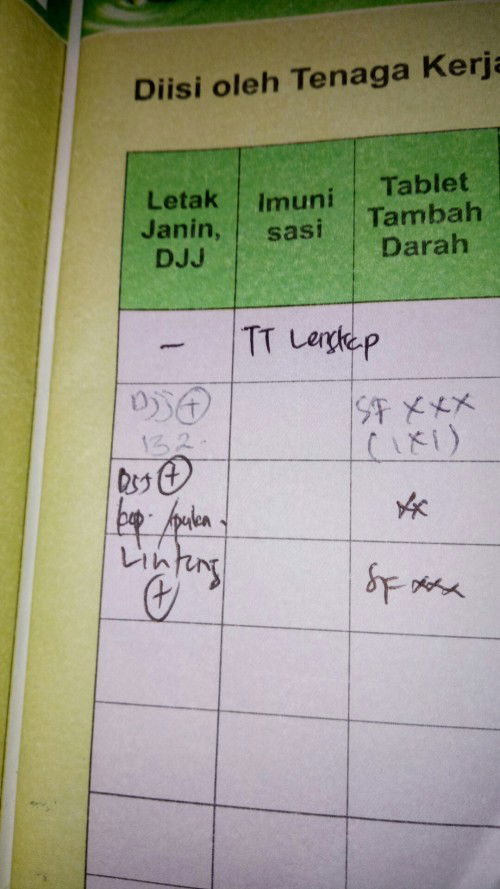 Diisi oleh Tenaga Kerja
Letak
Janin,
DJJ
Imuni
sasi
Tablet
Tambah
Darah
—
TT Lengkap
DJJ (+)
132
SF XXX
(1x1)
DJJ (+)
kep.
XX
Lintang
(+)
SF xxx